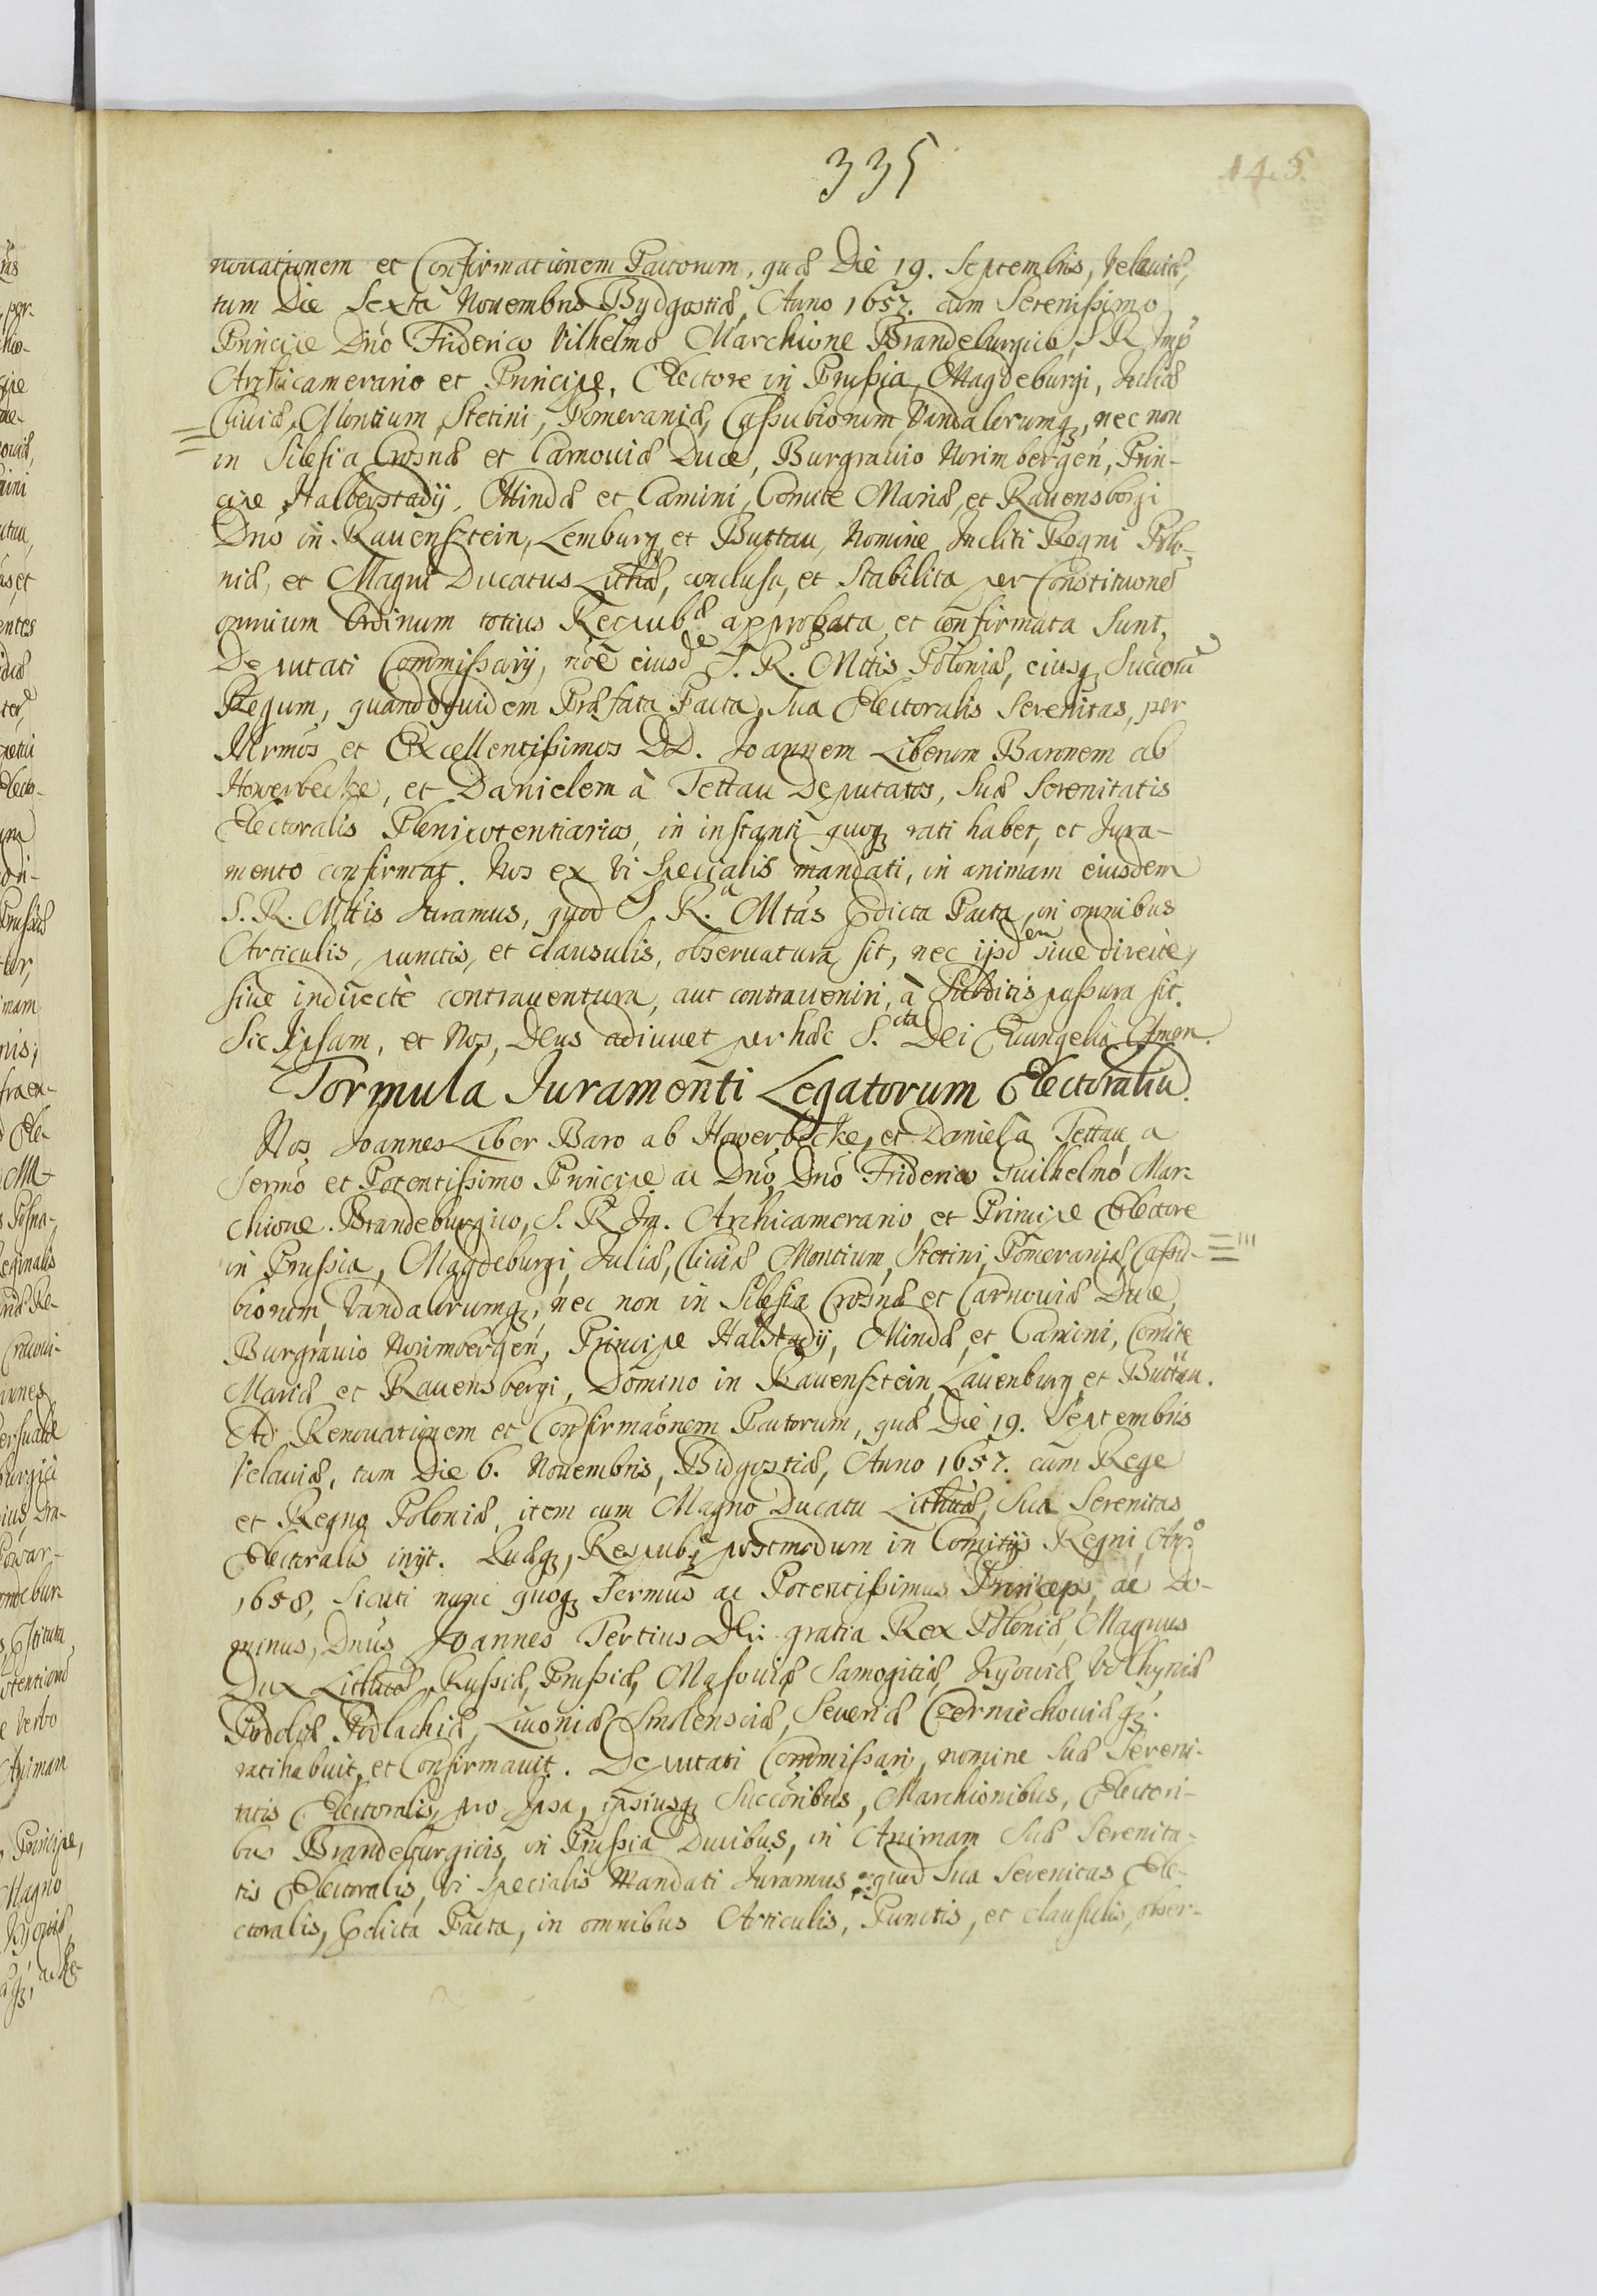 335
145.
nouationem et Confirmationem Pactorum, quæ Die 19. Septembris, Velauiæ,
tum Die Sexta Nouembris Bydgostiæ, Anno 1657. cum Serenissimo
Principe Dno Friderico Vilhelmo Marchione Brandeburgico, S R Imp
Archicamerario et Principe, Electore in Prussia, Magdeburgi, Juliæ
Cliuiæ, Montium, Stetini, Pomeraniæ, Cassubiorum Vandalorumq, nec non
in Silesia Crosnæ et Carnouiæ Duce, Burgrauio Norimbergen, Prin-
cipe Halberstadij, Mindæ et Camini, Comite Mariæ, et Rauensborgi
Dno in Rauensztein, Lemburg et Buttau, Nomine Incliti Regni Polo-
niæ, et Magni Ducatus Lithæ, conclusa, et Stabilita per Constitutiones
omnium Ordinum totius Reipubæ approbata et confirmata Sunt,
Deputati Commissarij, nõe eiusde S. R. Mttis Poloniæ, eiusq Succorũ
Regum, quandoquidem Præfata Pacta, Sua Electoralis Serenitas, per
Illrmos et Excellentissimos DD. Joannem Liberum Baronem ab
Howerbecke, et Danielem à Tettau Deputatos, Suæ Serenitatis
Electoralis Plenipotentiarios, in instanti quoq rati habet, et Jura-
mento confirmat. Nos ex vi specialis mandati, in animam eiusdem
S. R. Mttis Juramus, quod S. R.a Mtas pdicta Pacta, in omnibus
Articulis, punctis, et clausulis, obseruatura sit, nec ijsdem siue directe,
siue indirectè contrauentura, aut contraueniri, à Subditis passura sit.
Sic Ipsam, et Nos, Deus adiuuet per hæc S.cta Dei Euangelia Amen.
Formula Juramenti Legatorum Electoraliũ.
Nos Joannes Liber Baro ab Howerbecke, et Daniel à Tettau, a
Sermo et Potentissimo Principe ac Dno, Dno Friderico Guilhelmo Mar-
chione Brandeburgico, S. R Im. Archicamerario et Principe Electore
in Prussia, Magdeburgi, Juliæ, Cliuiæ Montium, Stetini, Pomeraniæ, Cassu-
biorum, Vandalorumq, nec non in Silesia Crosnæ et Carnouiæ Duce,
Burgrauio Norimbergen, Principe Halstadij, Mindæ, et Camini, Comite
Mariæ et Rauensbergi, Domino in Rauensztein, Lauenburg et Buttau.
Ad Renouationem et Confirmaõnem Pactorum, quæ Die 19. Septembris
Velauiæ, tum Die 6. Nouembris, Bidgostiæ, Anno 1657. cum Rege
et Regno Poloniæ, item cum Magno Ducatu Lithuæ, Sua Serenitas
Electoralis inijt. Quæq, Respubca postmodum in Comitijs Regni, Ano
1658, Sicuti nunc quoq Sermus ac Potentissimus Princeps, ac Do-
minus, Dnus Joannes Tertius Dei gratia Rex Poloniæ, Magnus
Dux Lithuæ, Russiæ, Prussiæ, Masouiæ Samogitiæ, Kyouiæ Volhyniæ
Podoliæ Podlachiæ, Liuoniæ Smolensciæ, Seueriæ Czerniechouiæq.
ratihabuit, et Confirmauit. Deputati Commissarij, nomine Suæ Sereni-
tatis Electoralis, pro Ipsa, ipsiusq Succoribus, Marchionibus, Electori-
bus Brandeburgicis, in Prussia Ducibus, in Animam Suæ Serenita-
tis Electoralis, vi specialis Mandati Juramus, quod Sua Serenitas Ele-
ctoralis, pdicta Pacta, in omnibus Articulis, Punctis, et clausulis, obser-